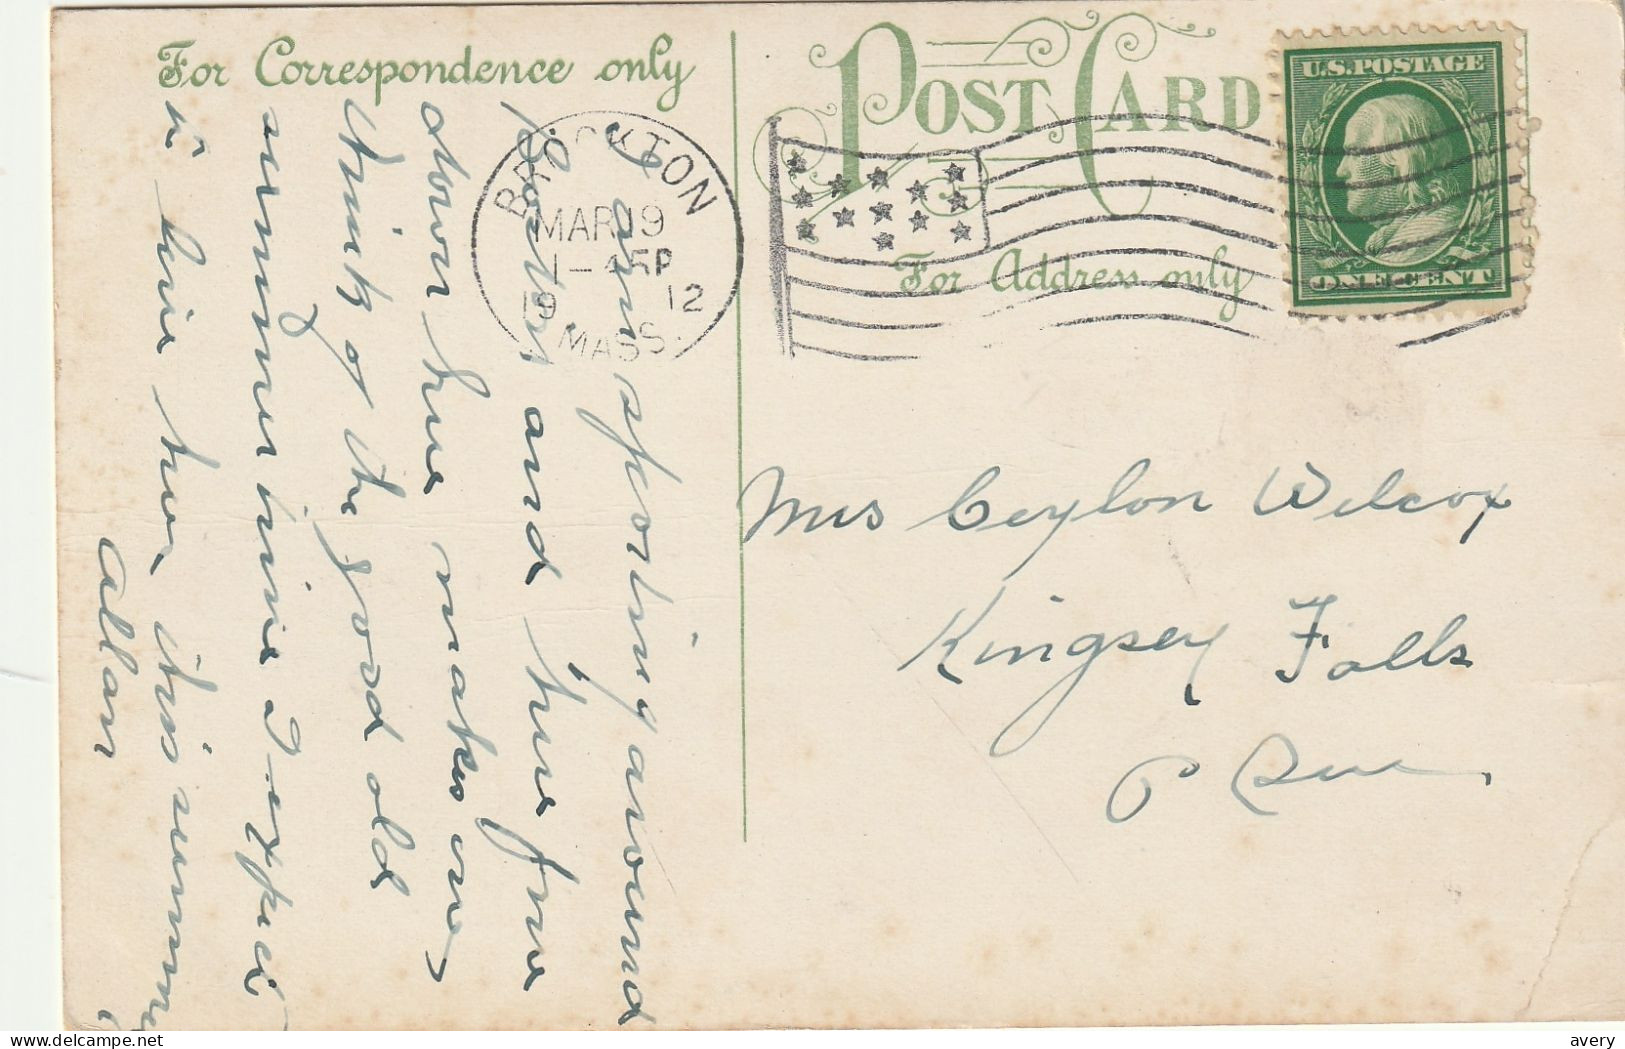 For Correspondence only
POST CARD
For Address only
U.S. POSTAGE
ONE CENT
BROCKTON
MAR 19
1 - P
19 12
MASS.
I am sporting around
Boston and
down here makes me
think of the good old
summer time I expect
to be here this summer
Allan
Mrs Ceylon Wilcox
Kingsey Falls
P Que
delcampe.net
avery